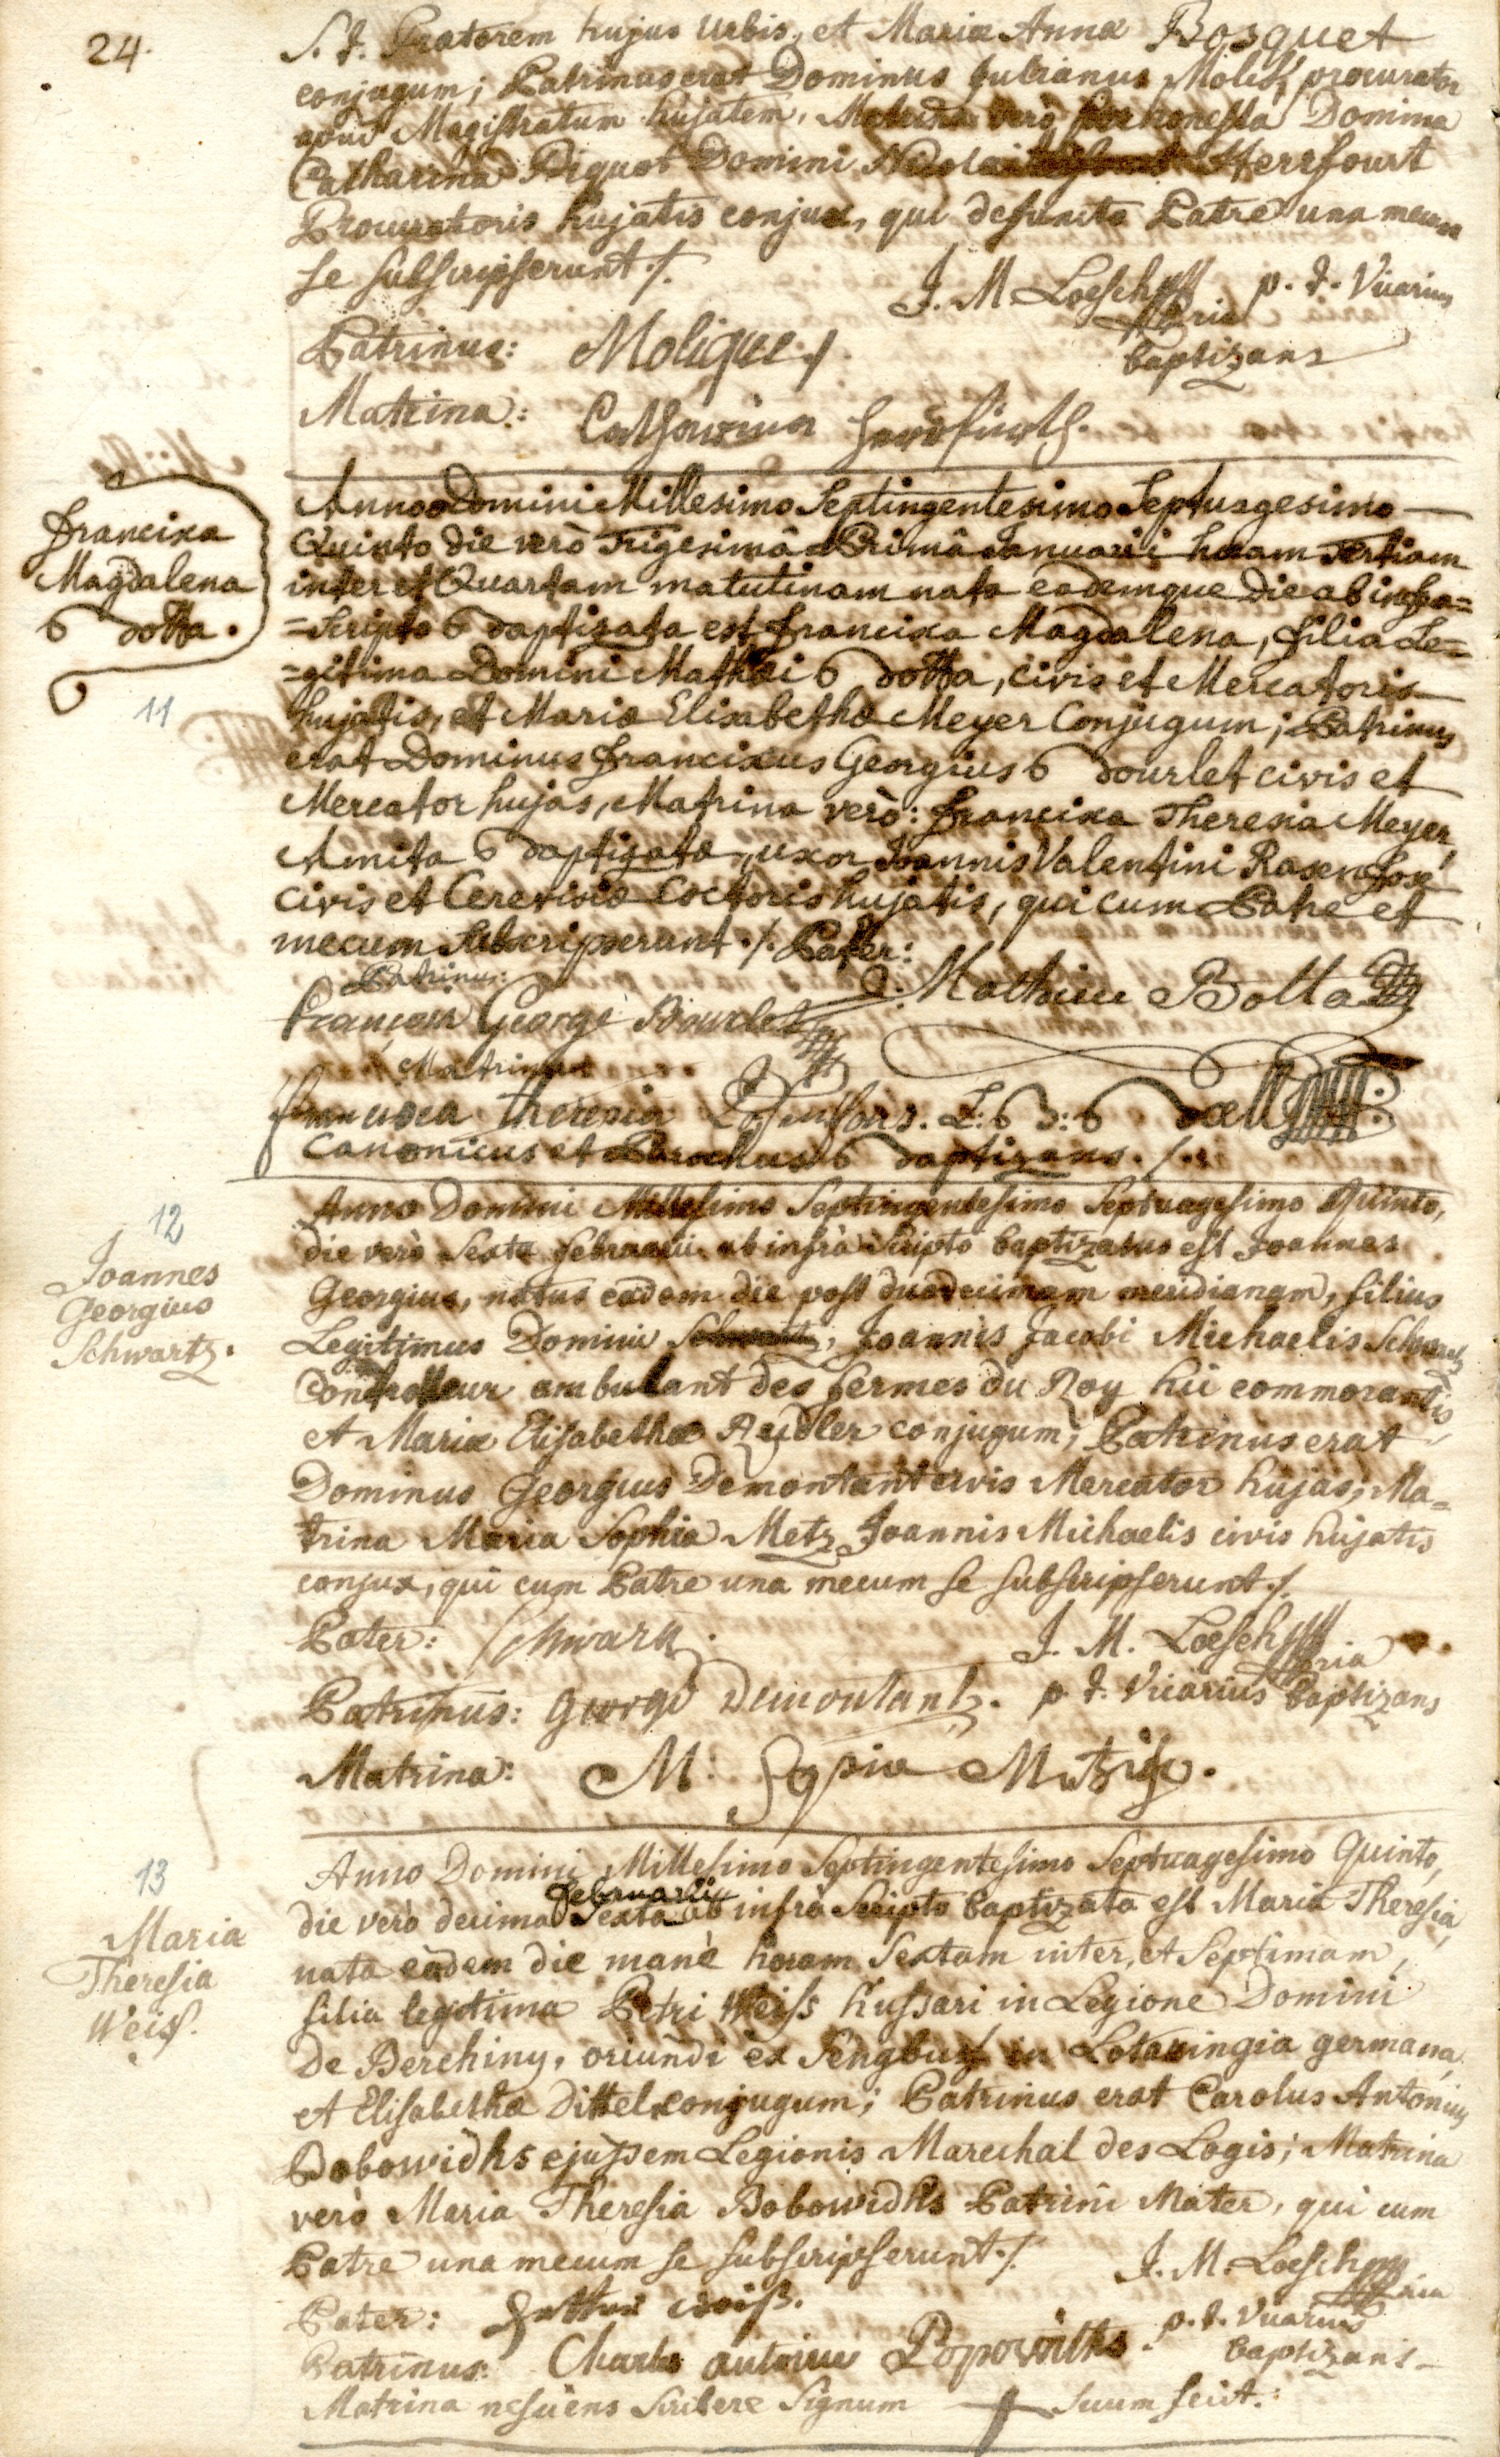 24.
S. T. Prætorem hujus Urbis, et Mariæ Annæ Bosquet
conjugum; Patrinus erat Dominus Julianus Molik, procurator
apud Magistratum hujatem, Matrina verò Domina
Catharina Piquot Domini Nicolai Herrfourt
Procuratoris hujatis conjux, qui defuncto Patre una mecum
se subscripserunt ./.
J. M. Loesch p. t. Vicarius
baptizans
Patrinus: Molique ./.
Matrina:
Francisca
Magdalena
Botta.
11
Anno Domini Millesimo Septingentesimo Septuagesimo
Quinto die verò Trigesimâ Primâ Januarii horam Tertiam
inter et Quartam matutinam nata eademque die ab infra=
=Scripto Baptizata est Francisca Magdalena, filia Le=
=gitima Domini Mathæi Botta, civis et Mercatoris
hujatis, et Mariæ Elisabethæ Meyer Conjugum; Patrinus
erat Dominus Franciscus Georgius Bourlet civis et
Mercator hujas, Matrina verò: Francisca Theresia Meyer,
Amita Baptizatæ, uxor Joannis Valentini Rosenfosz
civis et Cerevisiæ Coctoris hujatis, qui cum Patre et
mecum Subscripserunt ./. Pater:
Patrinus:
Mathieu Botta
François George Bourlet
Matrina
Francisca theresia
Canonicus et Parochus Baptizans ./.
12
Joannes
Georgius
Schwartz.
Anno Domini Millesimo Septingentesimo Septuagesimo Quinto,
die verò Sexta februarii ab infrà Scripto baptizatus est Joannes
Georgius, natus eâdem die post duodecimam meridianam, filius
Legitimus Domini Joannis Jacobi Michaelis Schwartz
Controlleur ambulant des fermes du Roy hic commorantis
et Mariæ Elisabethæ Reidler conjugum; Patrinus erat
Dominus Georgius Demontant civis Mercator hujas; Ma=
trina Maria Sophia Metz Joannis Michaelis civis hujatis
conjux, qui cum Patre una mecum se subscripserunt ./.
Pater: Schwartz.
J. M. Loesch
Patrinus: George Demontant. p. t. Vicarius baptizans
Matrina: M:
13
Maria
Theresia
Weiss.
Anno Domini Millesimo Septingentesimo Septuagesimo Quinto,
februarii
die verò decima Sexta ab infrà Scripto baptizata est Maria Theresia,
nata eâdem die manè horam Sextam inter, et Septimam,
filia legitima Petri Weiss hussari in Legione Domini
De Berchiny, oriundi ex Sengbusz in Lotaringia germana,
et Elisabetha Dittel conjugum; Patrinus erat Carolus Antonius
Bobowidhs ejusdem Legionis Marechal des Logis; Matrina
verò Maria Theresia Bobowidhs Patrini Mater, qui cum
Patre una mecum se subscripserunt ./.
J. M. Loesch
Pater: weiß.
p. t. Vicarius
Patrinus: Charle antoine Popowiths.
baptizans
Matrina nesciens scribere Signum + suum fecit.